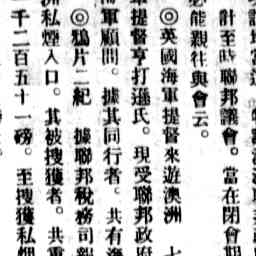 計至時聯邦議會。當在閉會期
必能親往與會云。
◎英國海軍提督來遊澳洲 七
軍提督亨打遜氏。現受聯邦政府
海軍顧問。據其同行者。共有
◎鴉片二紀 據聯邦稅務司報
洲私煙入口。其被搜獲者。共重
千二百五十一磅。至搜獲私煙